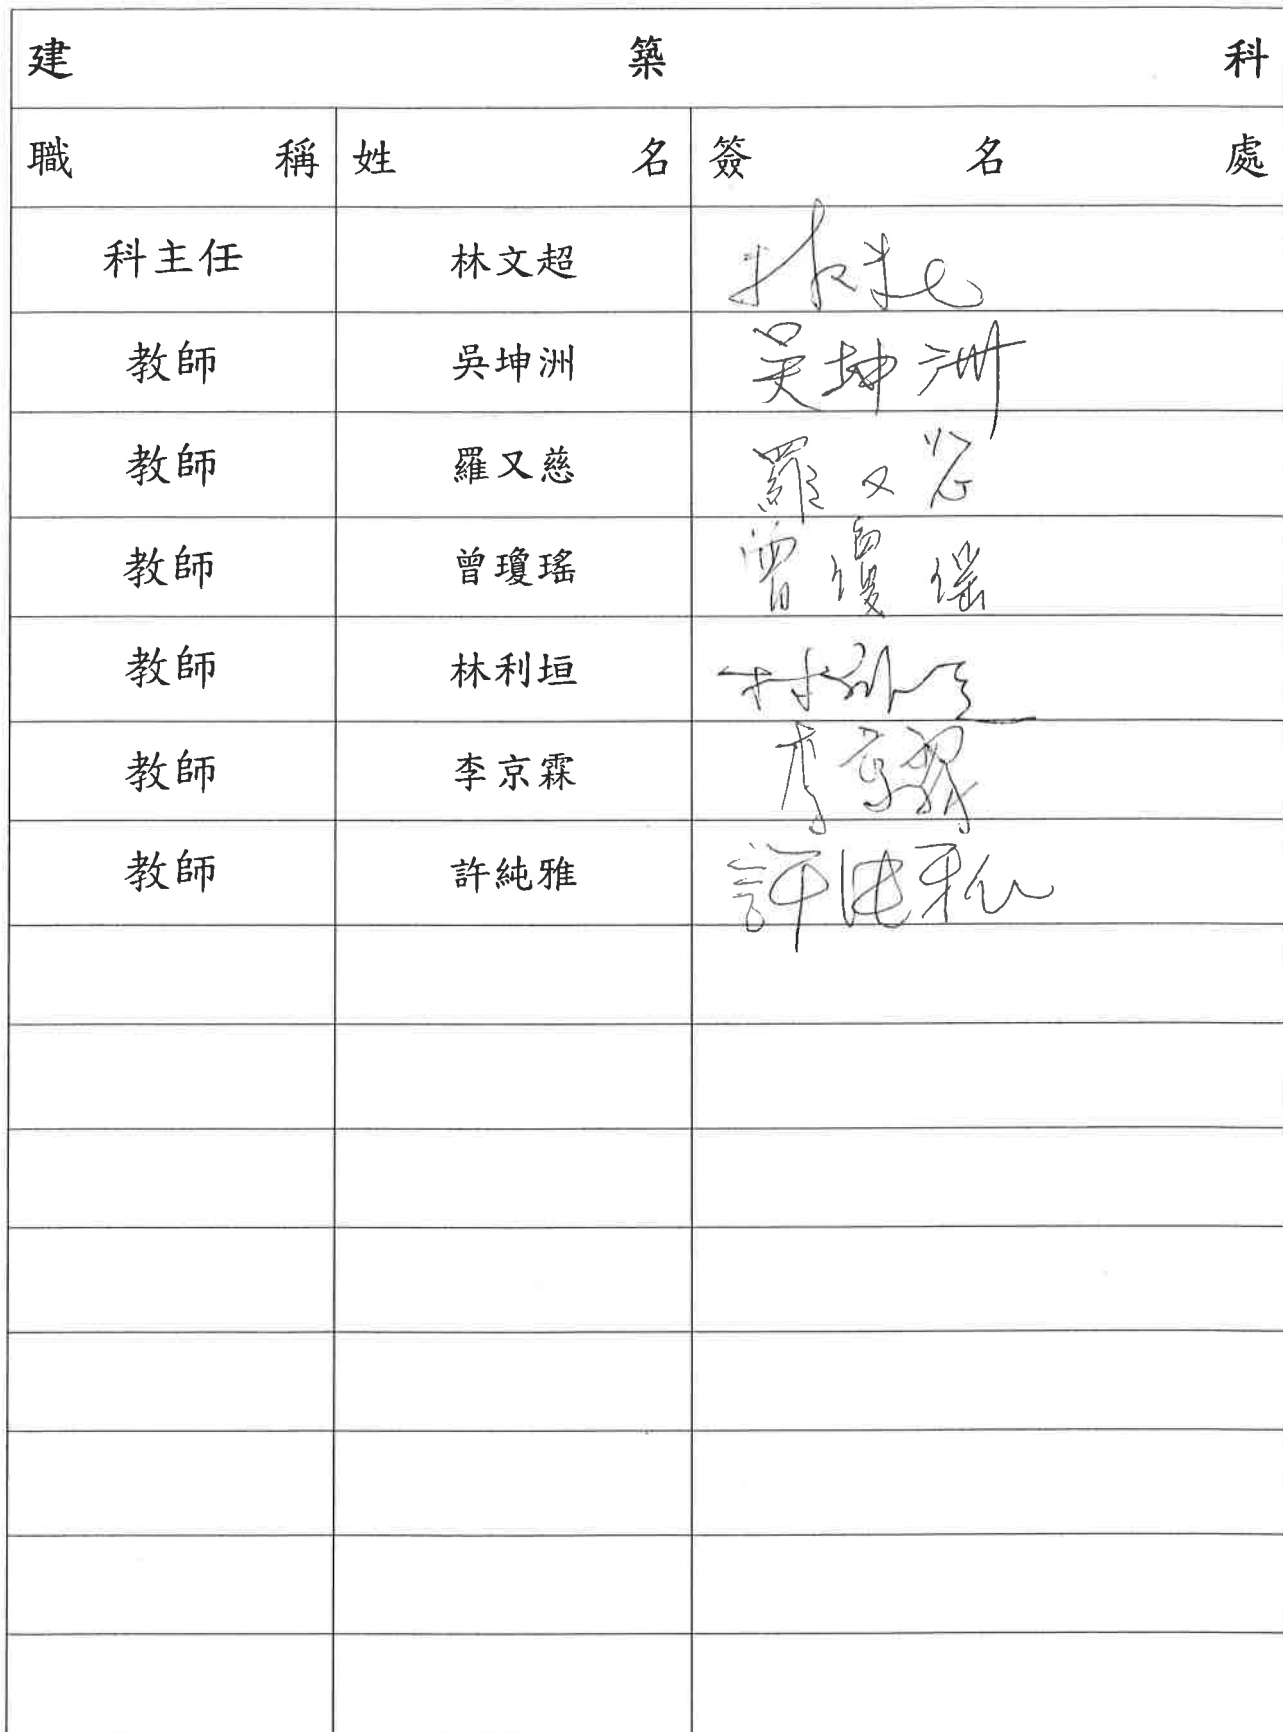 建築科
職稱 姓名 簽名處
科主任 林文超
教師 吳坤洲 吳坤洲
教師 羅又慈 羅又慈
教師 曾瓊瑤 曾瓊瑤
教師 林利垣
教師 李京霖
教師 許純雅 許純雅